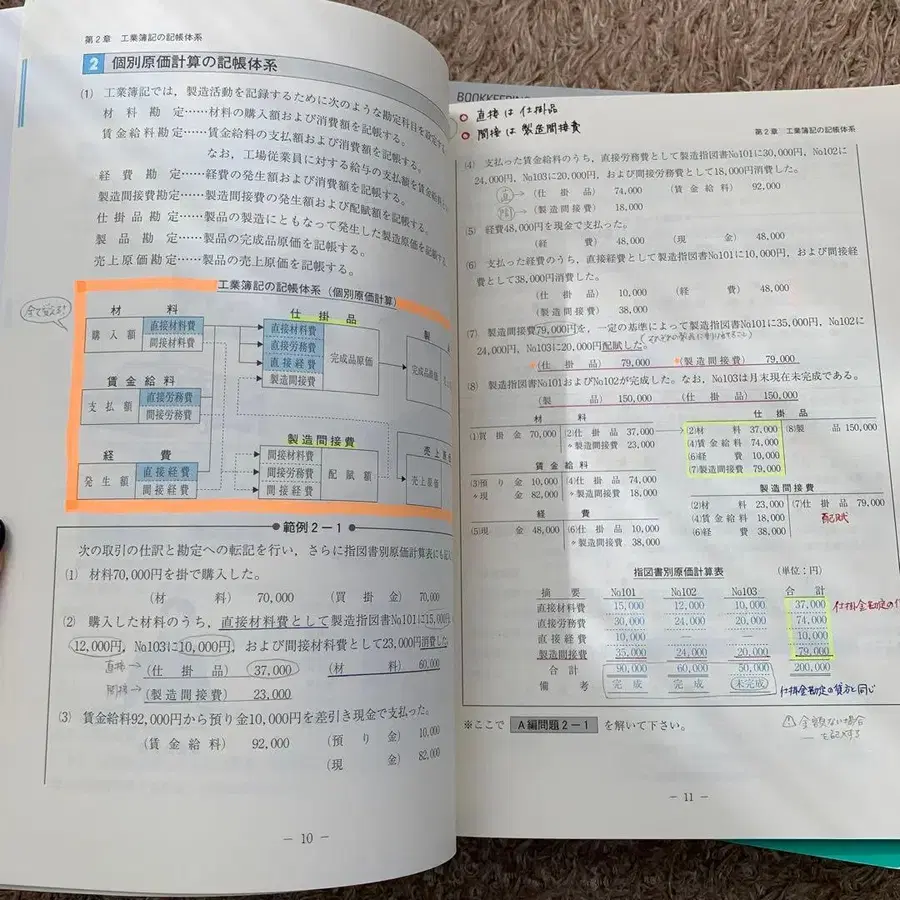 第2章 工業簿記の記帳体系
2 個別原価計算の記帳体系
(1) 工業簿記では，製造活動を記録するために次のような勘定科目を設定する
材料勘定……材料の購入額および消費額を記帳する。
賃金給料勘定……賃金給料の支払額および消費額を記帳する。
なお，工場従業員に対する給与の支払額を賃金給料
経費勘定……経費の発生額および消費額を記帳する。
製造間接費勘定……製造間接費の発生額および配賦額を記帳する。
仕掛品勘定……製品の製造にともなって発生した製造原価を記帳する
製品勘定……製品の完成品原価を記帳する。
売上原価勘定……製品の売上原価を記帳する。
工業簿記の記帳体系（個別原価計算）
全て覚える!
材料
購入額 直接材料費
間接材料費
賃金給料
支払額 直接労務費
間接労務費
経費
発生額 直接経費
間接経費
仕掛品
直接材料費
直接労務費
直接経費
製造間接費
完成品原価
製造間接費
間接材料費
間接労務費
間接経費
配賦額
製
完成品原価
売上原
売上原価
範例2－1
次の取引の仕訳と勘定への転記を行い，さらに指図書別原価計算表にも記入
(1) 材料70,000円を掛で購入した。
（材料） 70,000 （買掛金） 70,000
(2) 購入した材料のうち，直接材料費として製造指図書No101に15,000円
12,000円，No103に10,000円，および間接材料費として23,000円消費した
直接→（仕掛品） 37,000 （材料） 60,000
間接→（製造間接費） 23,000
(3) 賃金給料92,000円から預り金10,000円を差引き現金で支払った。
（賃金給料） 92,000 （預り金） 10,000
（現金） 82,000
－ 10 －
BOOKKEEPING
直接は仕掛品
間接は製造間接費
第2章 工業簿記の記帳体系
(4) 支払った賃金給料のうち，直接労務費として製造指図書No101に30,000円，No102に
24,000円，No103に20,000円，および間接労務費として18,000円消費した。
直→（仕掛品） 74,000 （賃金給料） 92,000
間→（製造間接費） 18,000
(5) 経費48,000円を現金で支払った。
（経費） 48,000 （現金） 48,000
(6) 支払った経費のうち，直接経費として製造指図書No101に10,000円，および間接経
費として38,000円消費した。
（仕掛品） 10,000 （経費） 48,000
（製造間接費） 38,000
(7) 製造間接費79,000円を，一定の基準によって製造指図書No101に35,000円，No102に
24,000円，No103に20,000円配賦した。
（仕掛品） 79,000 （製造間接費） 79,000
(8) 製造指図書No101およびNo102が完成した。なお，No103は月末現在未完成である。
（製品） 150,000 （仕掛品） 150,000
材料
(1)買掛金 70,000 (2)仕掛品 37,000
〃製造間接費 23,000
賃金給料
(3)預り金 10,000 (4)仕掛品 74,000
〃現金 82,000 〃製造間接費 18,000
経費
(5)現金 48,000 (6)仕掛品 10,000
〃製造間接費 38,000
仕掛品
(2)材料 37,000 (8)製品 150,000
(4)賃金給料 74,000
(6)経費 10,000
(7)製造間接費 79,000
製造間接費
(2)材料 23,000 (7)仕掛品 79,000
(4)賃金給料 18,000 配賦
(6)経費 38,000
指図書別原価計算表 （単位：円）
摘要 No101 No102 No103 合計
直接材料費 15,000 12,000 10,000 37,000
直接労務費 30,000 24,000 20,000 74,000
直接経費 10,000 － － 10,000
製造間接費 35,000 24,000 20,000 79,000
合計 90,000 60,000 50,000 200,000
備考 完成 完成 未完成
仕掛金勘定の
仕掛金勘定の貸方と同じ
※ここで A編問題2－1 を解いて下さい。
金額ない場合
－ を記入する
－ 11 －